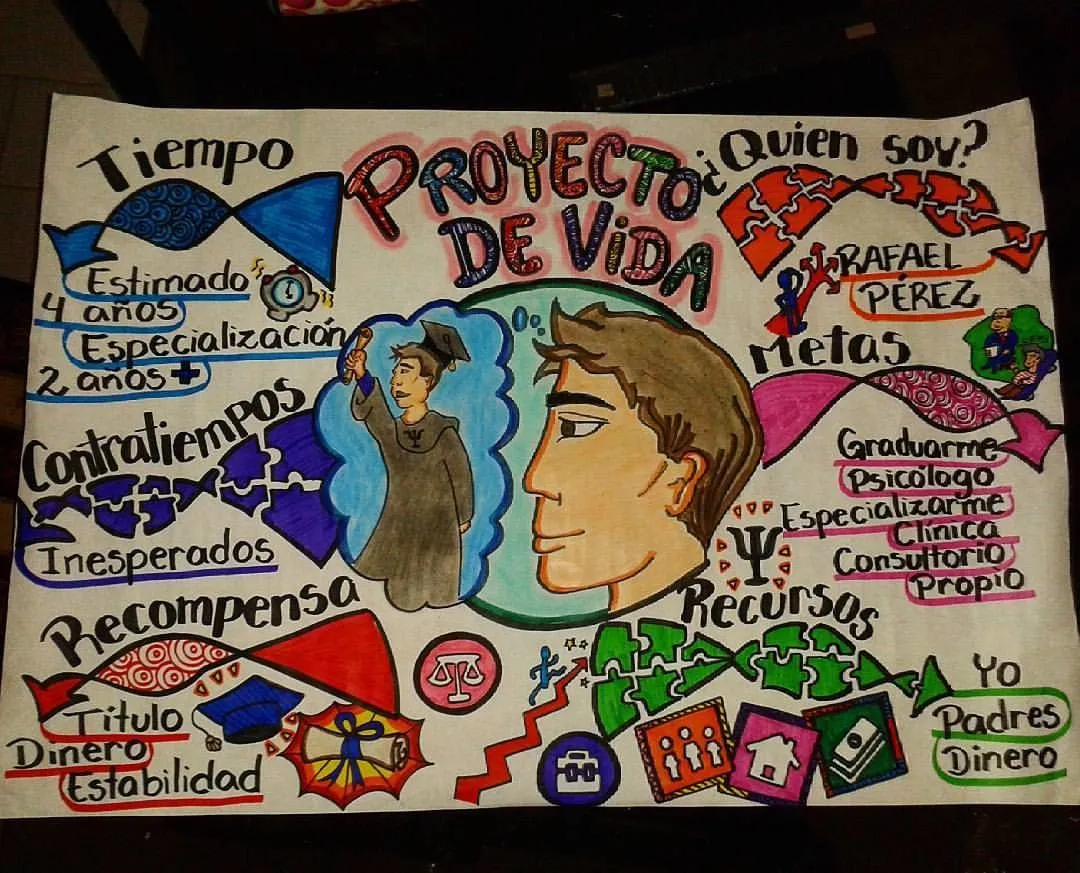 PROYECTO
DE ViDA
Tiempo
Estimado
4 años
Especialización
2 años +
Contratiempos
Inesperados
Recompensa
Título
Dinero
Estabilidad
¿Quien soy?
RAFAEL
PÉREZ
Metas
Graduarme
Psicólogo
Especializarme
Clínica
Consultorio
Propio
Ψ
Ψ
Recursos
Yo
Padres
Dinero